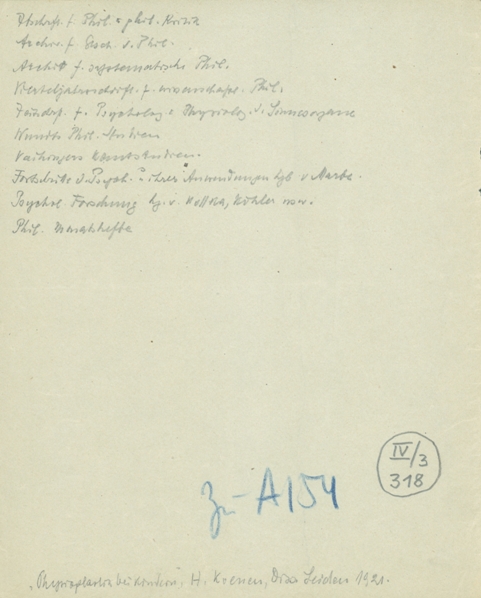 Ztschrft f. Phil. u phil. Kritik
Archiv f. Gesch. d. Phil.
Archiv f. systematische Phil.
Vierteljahrsschrft. f. wissenschaftl. Phil.
Zeitschr. f. Psycholog u Physiolog. d. Sinnesorgane
Wundts Phil. Studien
Vaihingers Kantstudien.
Fortschritte d. Psych. u ihrer Anwendungen hgb v Marbe.
Psychol. Forschung hg. v. Koffka, Köhler usw.
Phil. Monatshefte
IV/3
318
Zu A 154
bei Kindern". H. Koenen, Diss Leiden 1921.